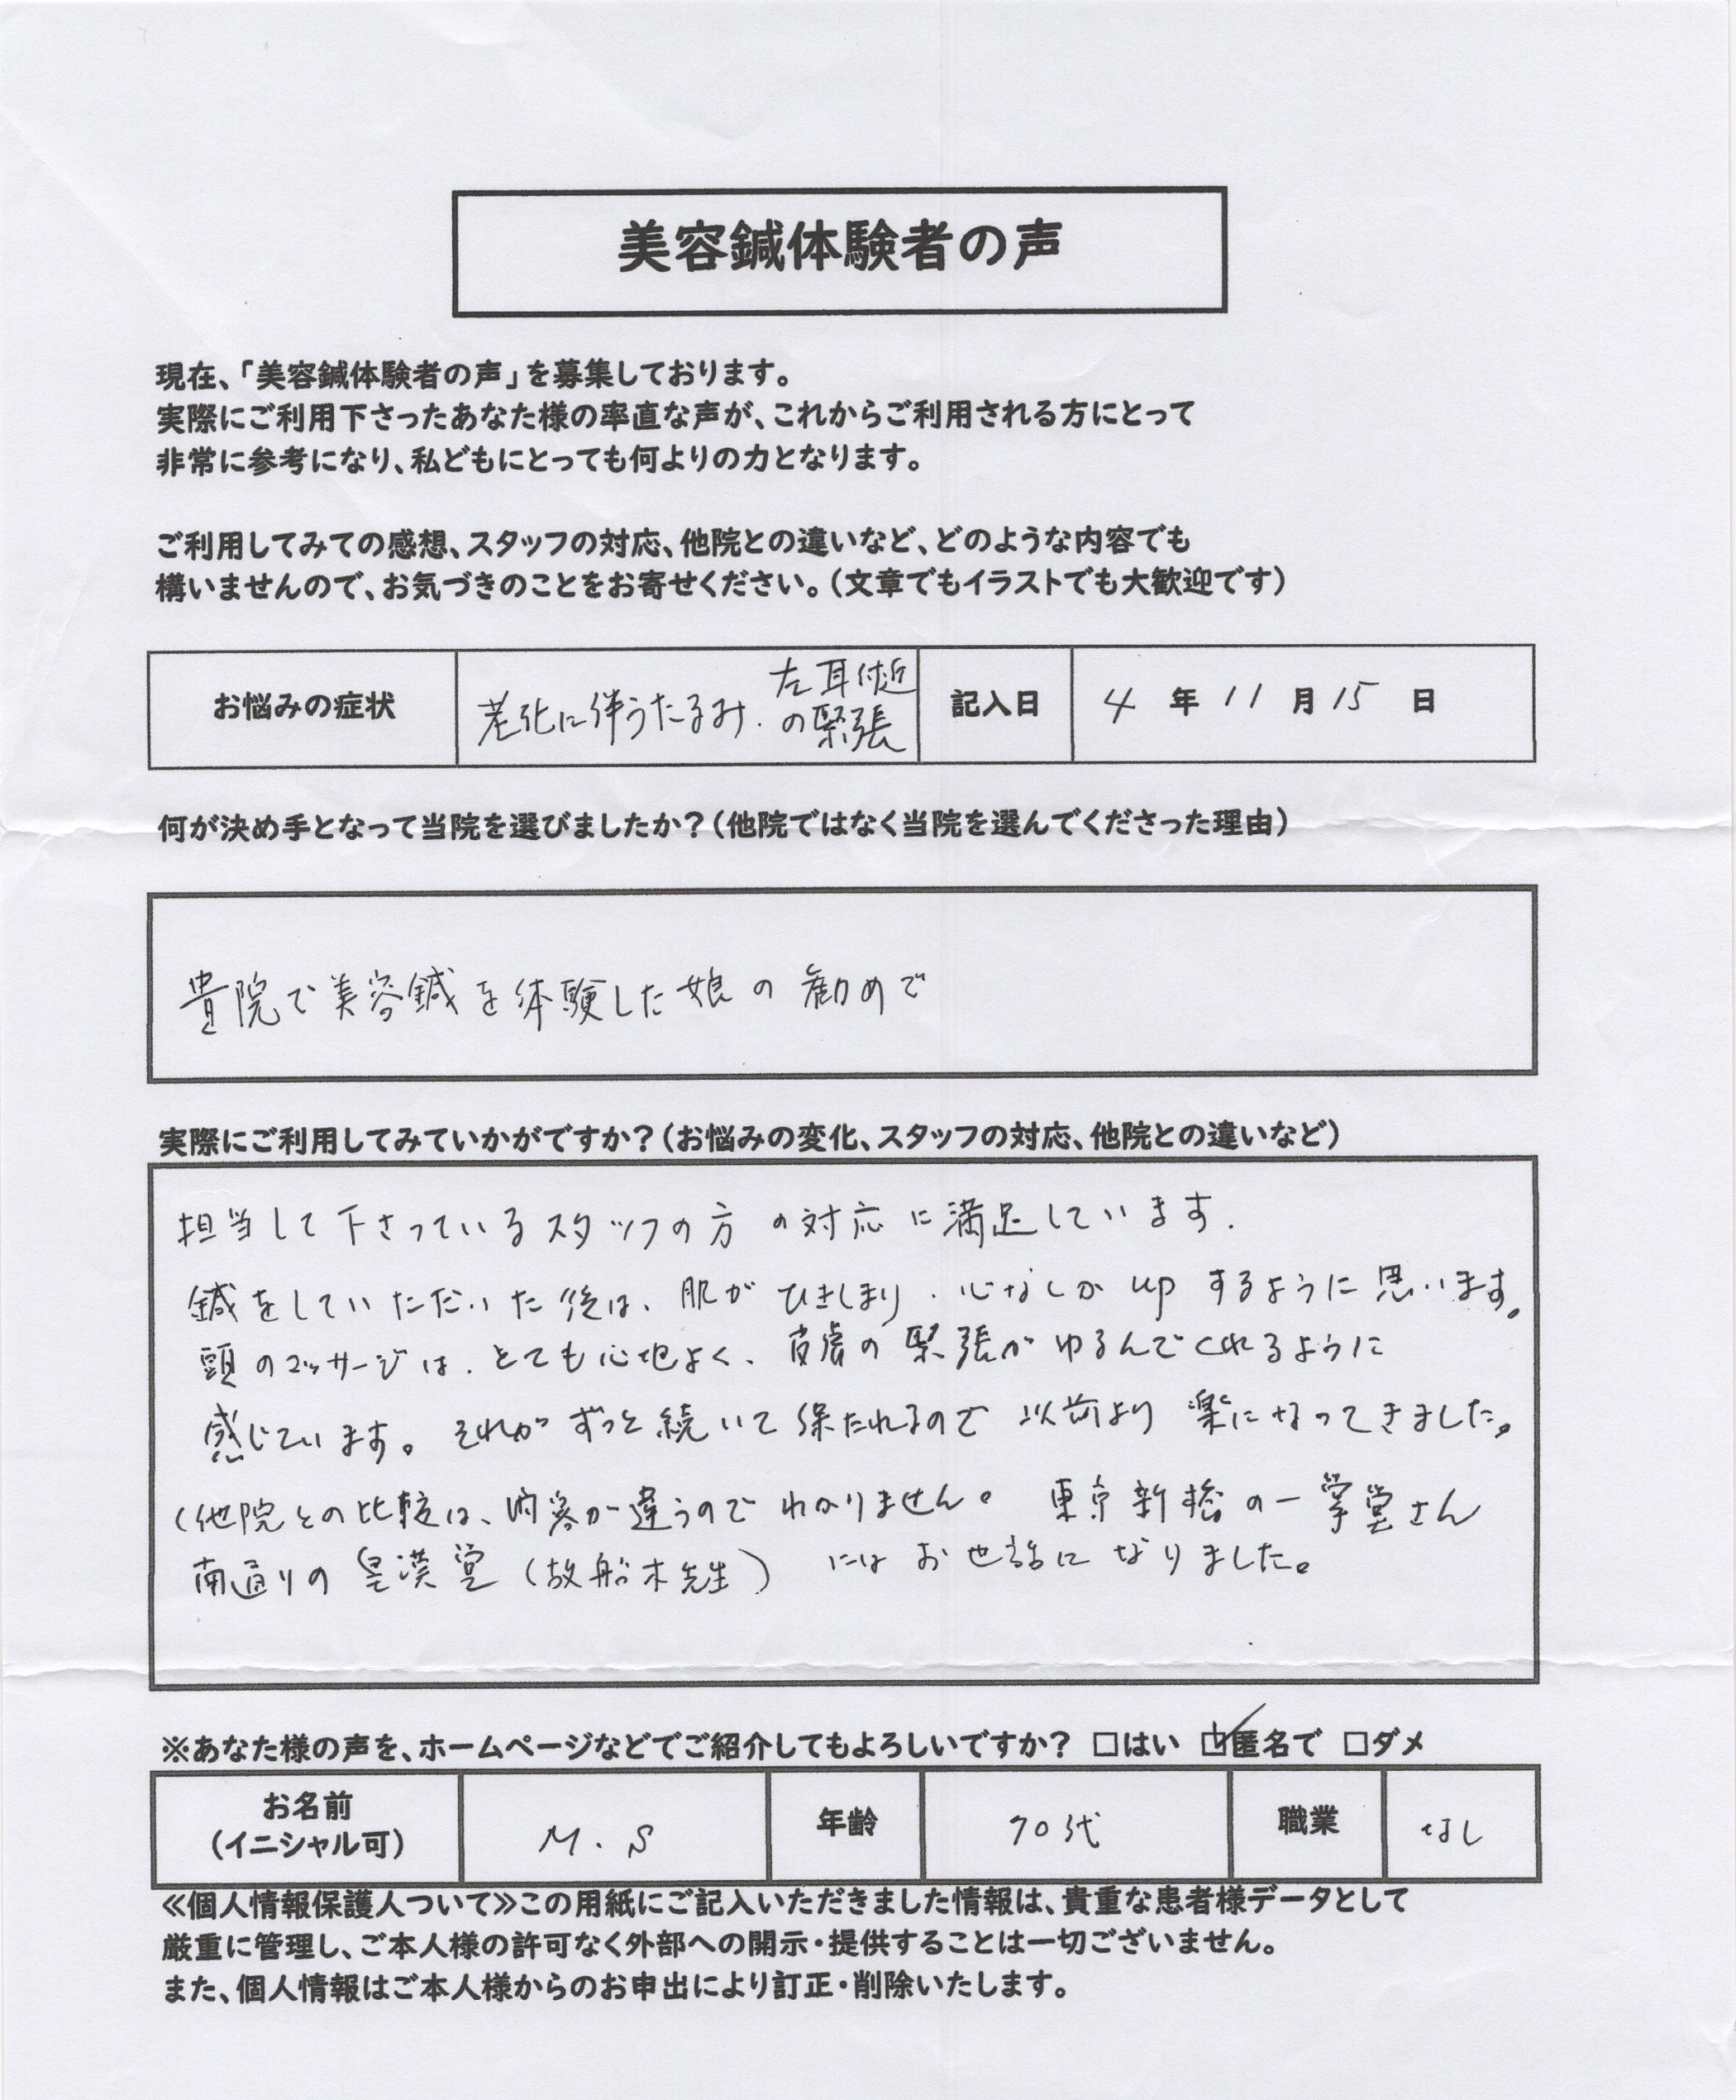 美容鍼体験者の声
現在、「美容鍼体験者の声」を募集しております。
実際にご利用下さったあなた様の率直な声が、これからご利用される方にとって
非常に参考になり、私どもにとっても何よりの力となります。
ご利用してみての感想、スタッフの対応、他院との違いなど、どのような内容でも
構いませんので、お気づきのことをお寄せください。（文章でもイラストでも大歓迎です）
お悩みの症状
老化に伴うたるみ. 左耳付近
の緊張
記入日
4 年 11 月 15 日
何が決め手となって当院を選びましたか？（他院ではなく当院を選んでくださった理由）
貴院で美容鍼を体験した娘の勧めで
実際にご利用してみていかがですか？（お悩みの変化、スタッフの対応、他院との違いなど）
担当して下さっているスタッフの方の対応に満足しています.
鍼をしていただいた後は、肌がひきしまり、心なしかupするように思います。
頭のマッサージは、とても心地よく、皮膚の緊張がゆるんでくれるように
感じています。それがずっと続いて保たれるので以前より楽になってきました。
（他院との比較は、内容が違うのでわかりません。東京新橋の一掌堂さん
南通りの皇漢堂（故船木先生）にはお世話になりました。
※あなた様の声を、ホームページなどでご紹介してもよろしいですか？ □はい ☑匿名で □ダメ
お名前
（イニシャル可）
M.S
年齢
70代
職業
なし
≪個人情報保護人ついて≫この用紙にご記入いただきました情報は、貴重な患者様データとして
厳重に管理し、ご本人様の許可なく外部への開示・提供することは一切ございません。
また、個人情報はご本人様からのお申出により訂正・削除いたします。